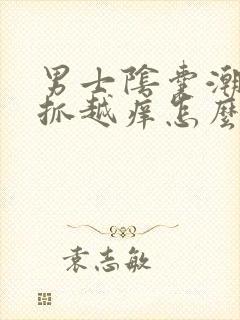 男士陰囊潮
抓越痒怎麼
袁志敏